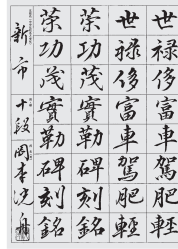 世禄侈富車駕肥輕
世禄侈富車駕肥輕
策功茂實勒碑刻銘
策功茂實勒碑刻銘
新市 十段 岡本